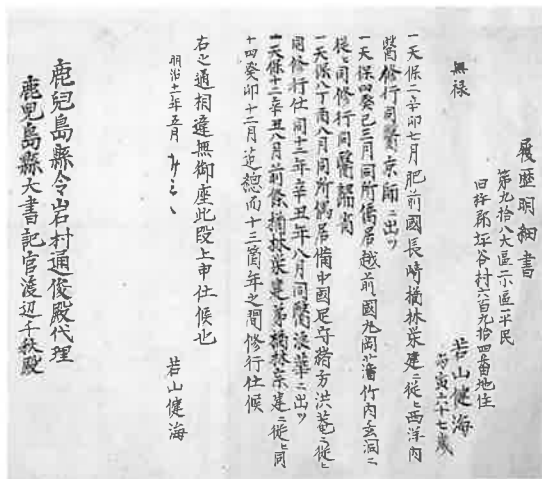 履歴明細書
第九拾八大區二小區平民
旧 郡坪谷村六百九拾四番地住
無禄
若山健海
六十七歳
一天保二辛卯七月肥前國長崎楢林栄建ニ従ヒ西洋内
醫修行同醫京師ニ出ツ
一天保四癸巳三月同所僑居越前國丸岡 藩竹内玄洞ニ
従ヒ同修行同醫歸省
一天保八丁酉八月同所偶居備中國足守緒方洪菴ニ従ヒ
同修行仕同十二年辛丑年八月同醫浪華ニ出ツ
一天保十二辛丑八月前條楢林栄建弟楢林宗建ニ従ヒ同
十四癸卯十二月迄惣而十三箇年之間修行仕候
右之通相違無御座此段上申仕候也
明治十一年五月
若山健海
鹿児島縣令岩村通俊殿代理
鹿児島縣大書記官渡辺千秋殿